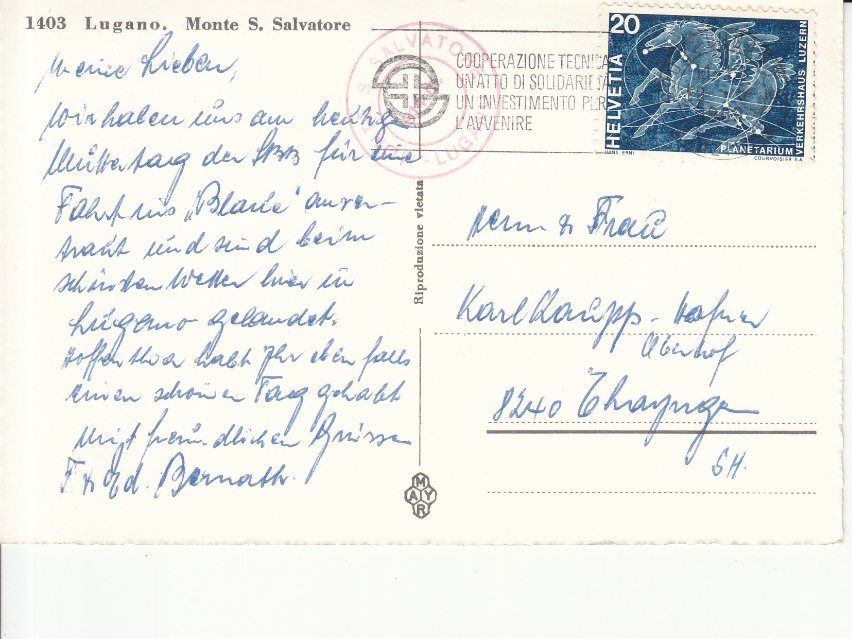 1403 Lugano. Monte S. Salvatore
Meine Lieben,
Wir haben uns am heutigen
Muttertag der SBB für eine
Fahrt ins „Blaue" anver-
traut und sind beim
schönsten Wetter hier in
Lugano gelandet.
Hoffentlich habt Ihr ebenfalls
einen schönen Tag gehabt
Mit freundlichen Grüssen
F & Ed. Bernath.
Riproduzione vietata
MAYR
S. SALVATORE
LUGANO
COOPERAZIONE TECNICA
UN ATTO DI SOLIDARIETÀ
UN INVESTIMENTO PER
L'AVVENIRE
20
HELVETIA
PLANETARIUM
VERKEHRSHAUS LUZERN
HANS ERNI
COURVOISIER S.A.
Herrn & Frau
Karl Kaupp-Hafner
Oberhof
8240 Thayngen
SH.